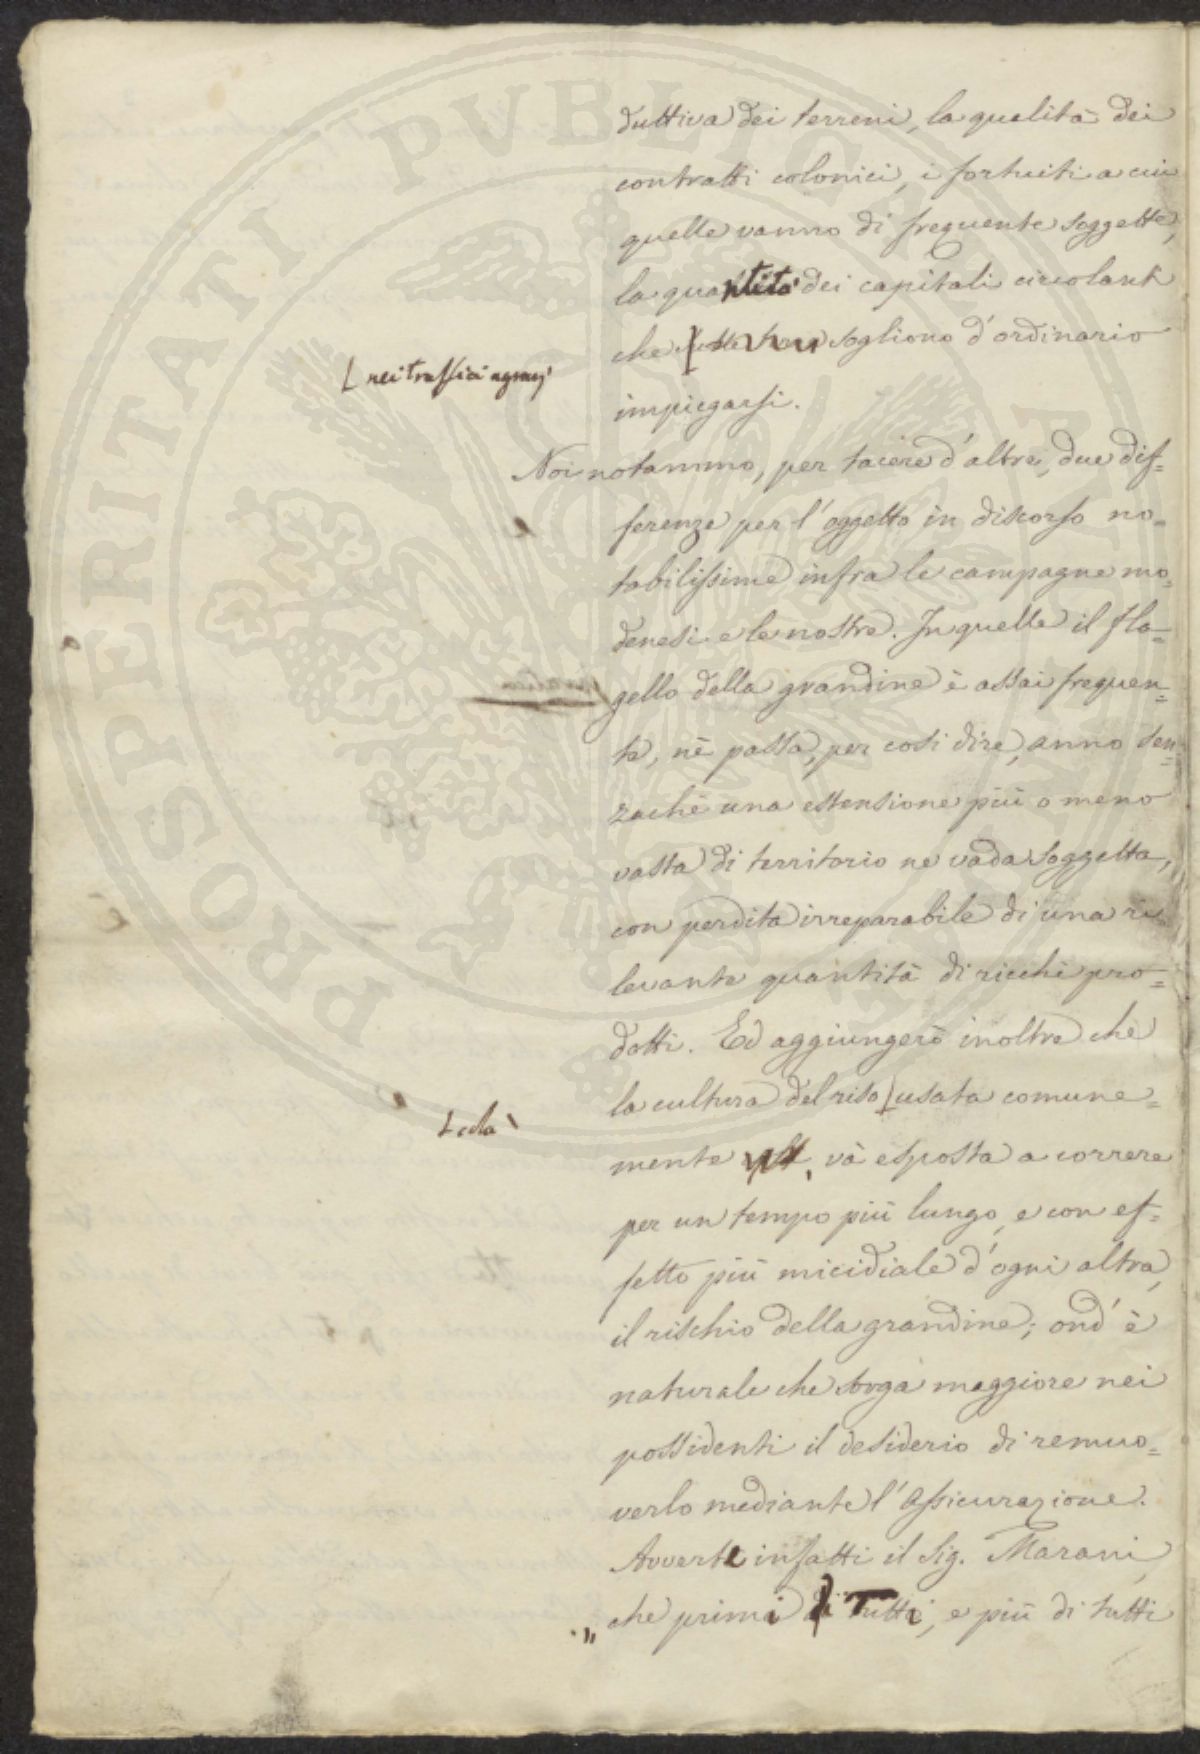 duttiva dei terreni, la qualità dei
contratti colonici, i fortuiti a cui
quelle vanno di frequente soggette,
la quantità dei capitali circolanti
che sogliono d'ordinario
L nei traffici agrarj
impiegarsi.
Noi notammo, per tacere d'altre, due dif=
ferenze per l'oggetto in discorso no=
tabilissime infra le campagne mo=
denesi e le nostre. In quelle il fla=
gello della grandine è assai frequen=
te, nè passa, per così dire, anno sen=
zachè una estensione più o meno
vasta di territorio ne vada soggetta,
con perdita irreparabile di una ri=
levante quantità di ricchi pro=
dotti. Ed aggiungerò inoltre che
la cultura del riso [usata comune=
L colà
mente, và esposta a correre
per un tempo più lungo, e con ef=
fetto più micidiale d'ogni altra,
il rischio della grandine; ond'è
naturale che sorga maggiore nei
possidenti il desiderio di remuo=
verlo mediante l'Assicurazione.
Avverte infatti il Sig. Marani,
„ che primi di tutti, e più di tutti
PROSPERITATI PVBLICAE